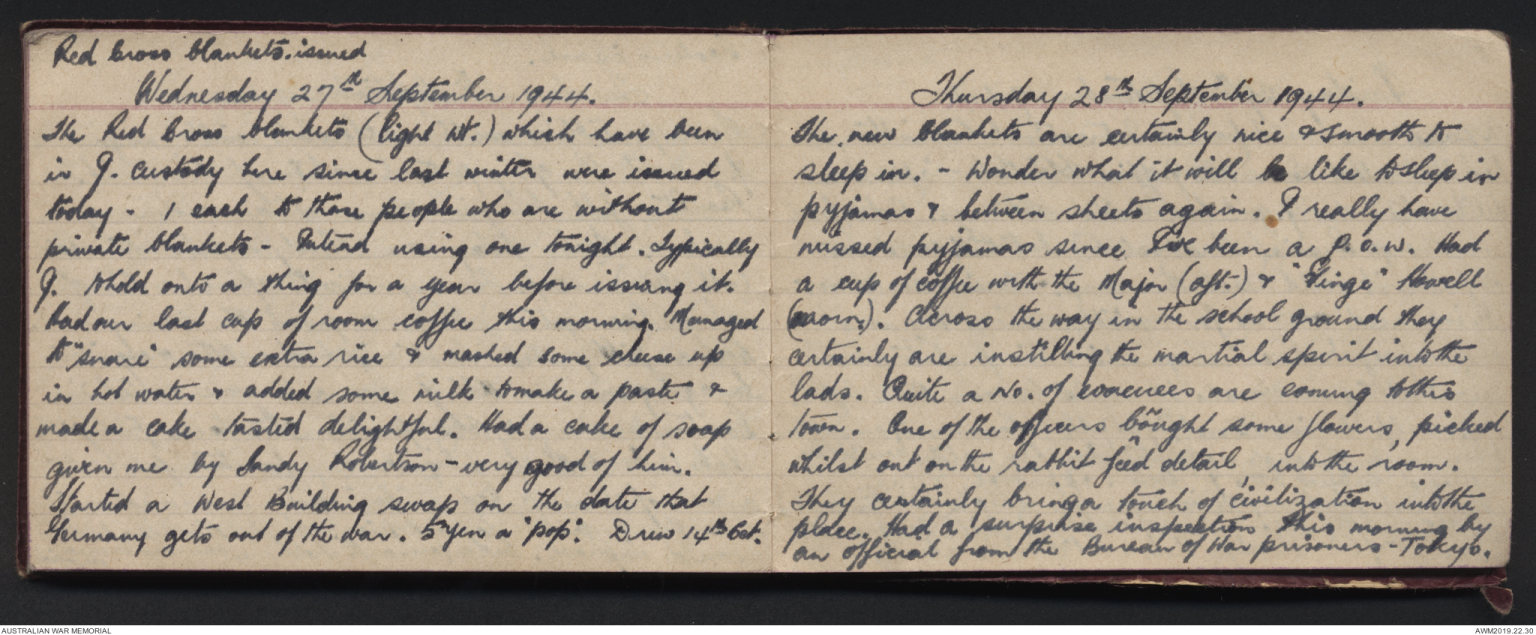 Red Cross blankets. issued
Wednesday 27th September 1944.
The Red Cross blankets (light wt.) which have been
in J. custody here since last winter were issued
today - 1 each to those people who are without
private blankets - Intend using one tonight. Typically
J. to hold onto a thing for a year before issuing it.
Had our last cup of room coffee this morning. Managed
to "snare" some extra rice & mashed some cheese up
in hot water & added some milk to make a paste &
made a cake tasted delightful. Had a cake of soap
given me by Sandy Robertson - very good of him.
Started a West Building swap on the date that
Germany gets out of the war. 5 Yen a "pop". Drew 14th Oct.
Thursday 28th September 1944.
The new blankets are certainly nice & smooth to
sleep in. - Wonder what it will be like to sleep in
pyjamas & between sheets again. I really have
missed pyjamas since I've been a P.O.W. Had
a cup of coffee with the Major (aft.) & "Hinge" Howell
(morn.). Across the way in the school ground they
certainly are instilling the martial spirit into the
lads. Quite a No. of evacuees are coming to this
town. One of the officers bought some flowers, picked
whilst out on the rabbit feed detail, into the room.
They certainly bring a touch of civilization into the
place. Had a surprise inspection this morning by
an official from the Bureau of War prisoners - Tokyo.
AUSTRALIAN WAR MEMORIAL
AWM2019.22.30